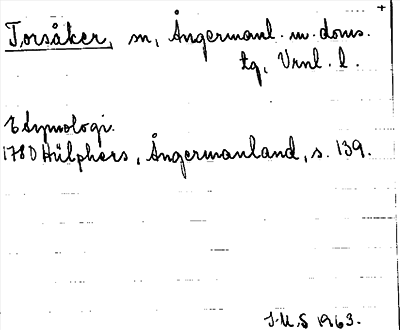 Torsåker, sn, Ångermanl. m. doms.
tg, Vrnl. l.
Etymologi.
1780 Hülphers, Ångermanland, s. 139.
J.U.S 1963.